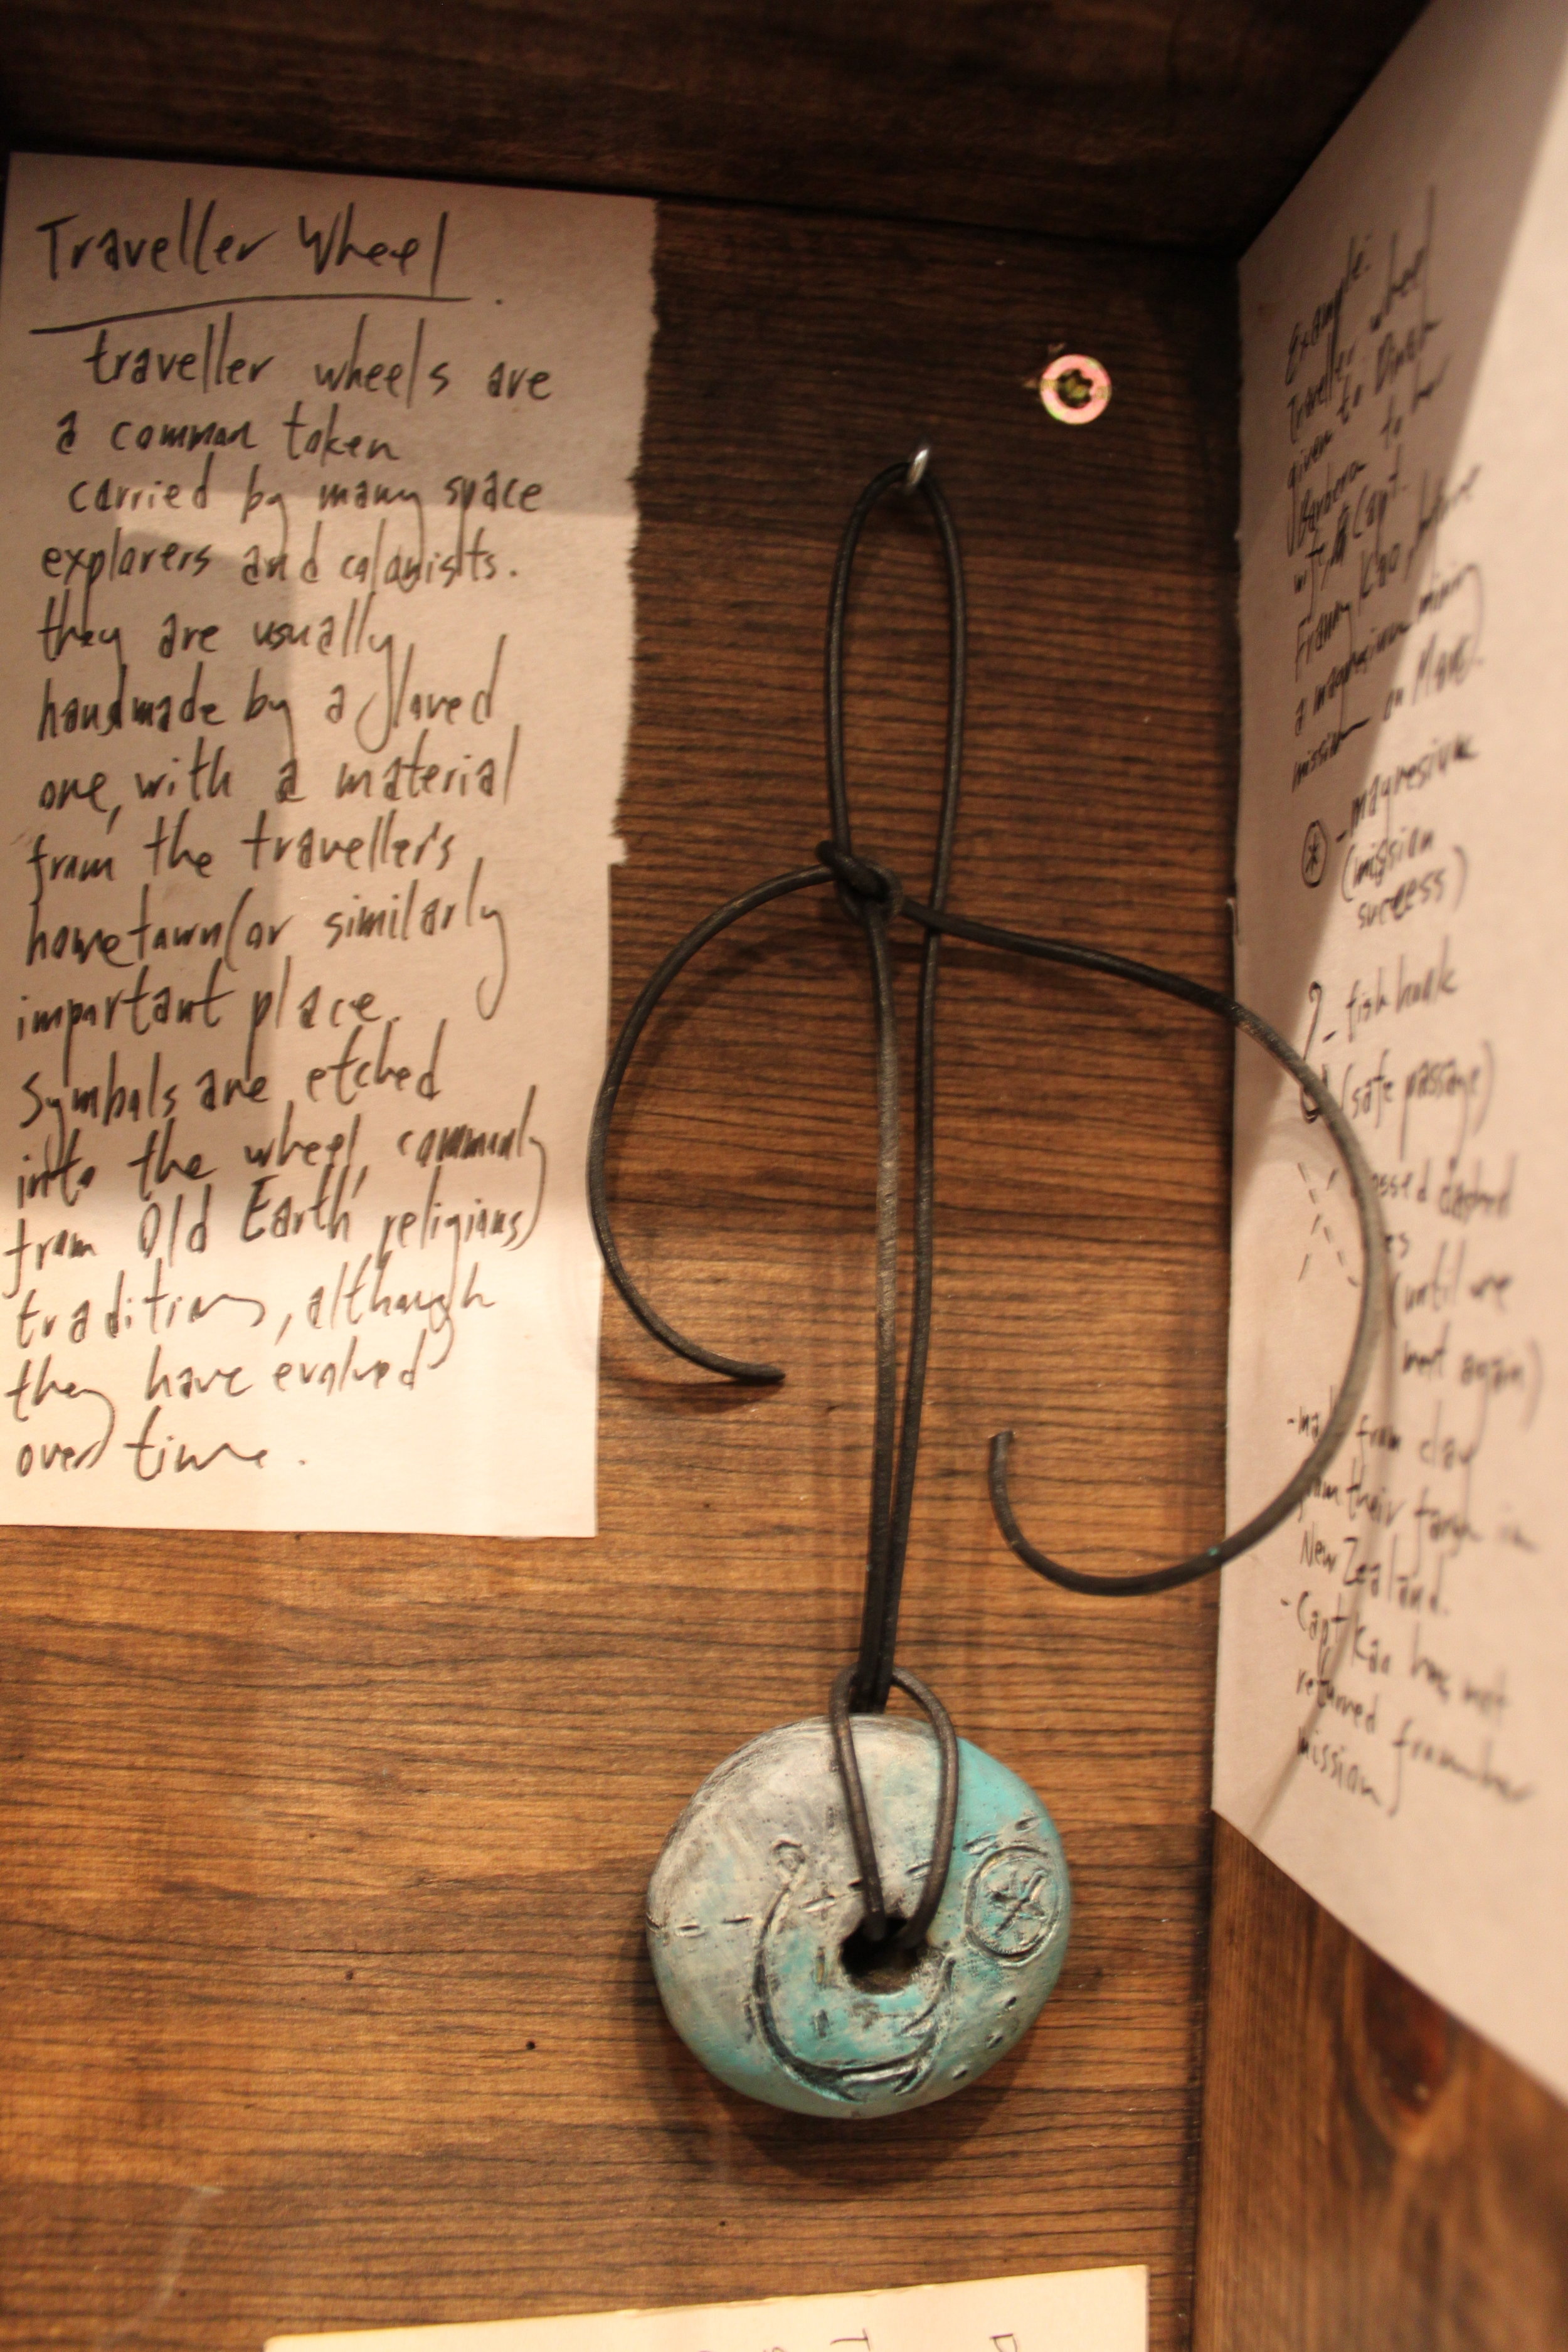 Traveller Wheel
traveller wheels are
a common token
carried by many space
explorers and colonists.
they are usually
handmade by a loved
one, with a material
from the traveller's
hometown (or similarly
important place.
Symbols are etched
into the wheel, commonly
from Old Earth religious
traditions, although
they have evolved
over time.
Example:
Traveller wheel
given to Dinah
Barbera to her
Capt.
Franny Kao, before
a magnesium mining
mission on
- magnesium
(mission
success)
- fish hook
(safe passage)
dashed
(until we
meet again)
- from clay
from their farm in
New Zealand.
- Capt Kao has not
returned from her
mission